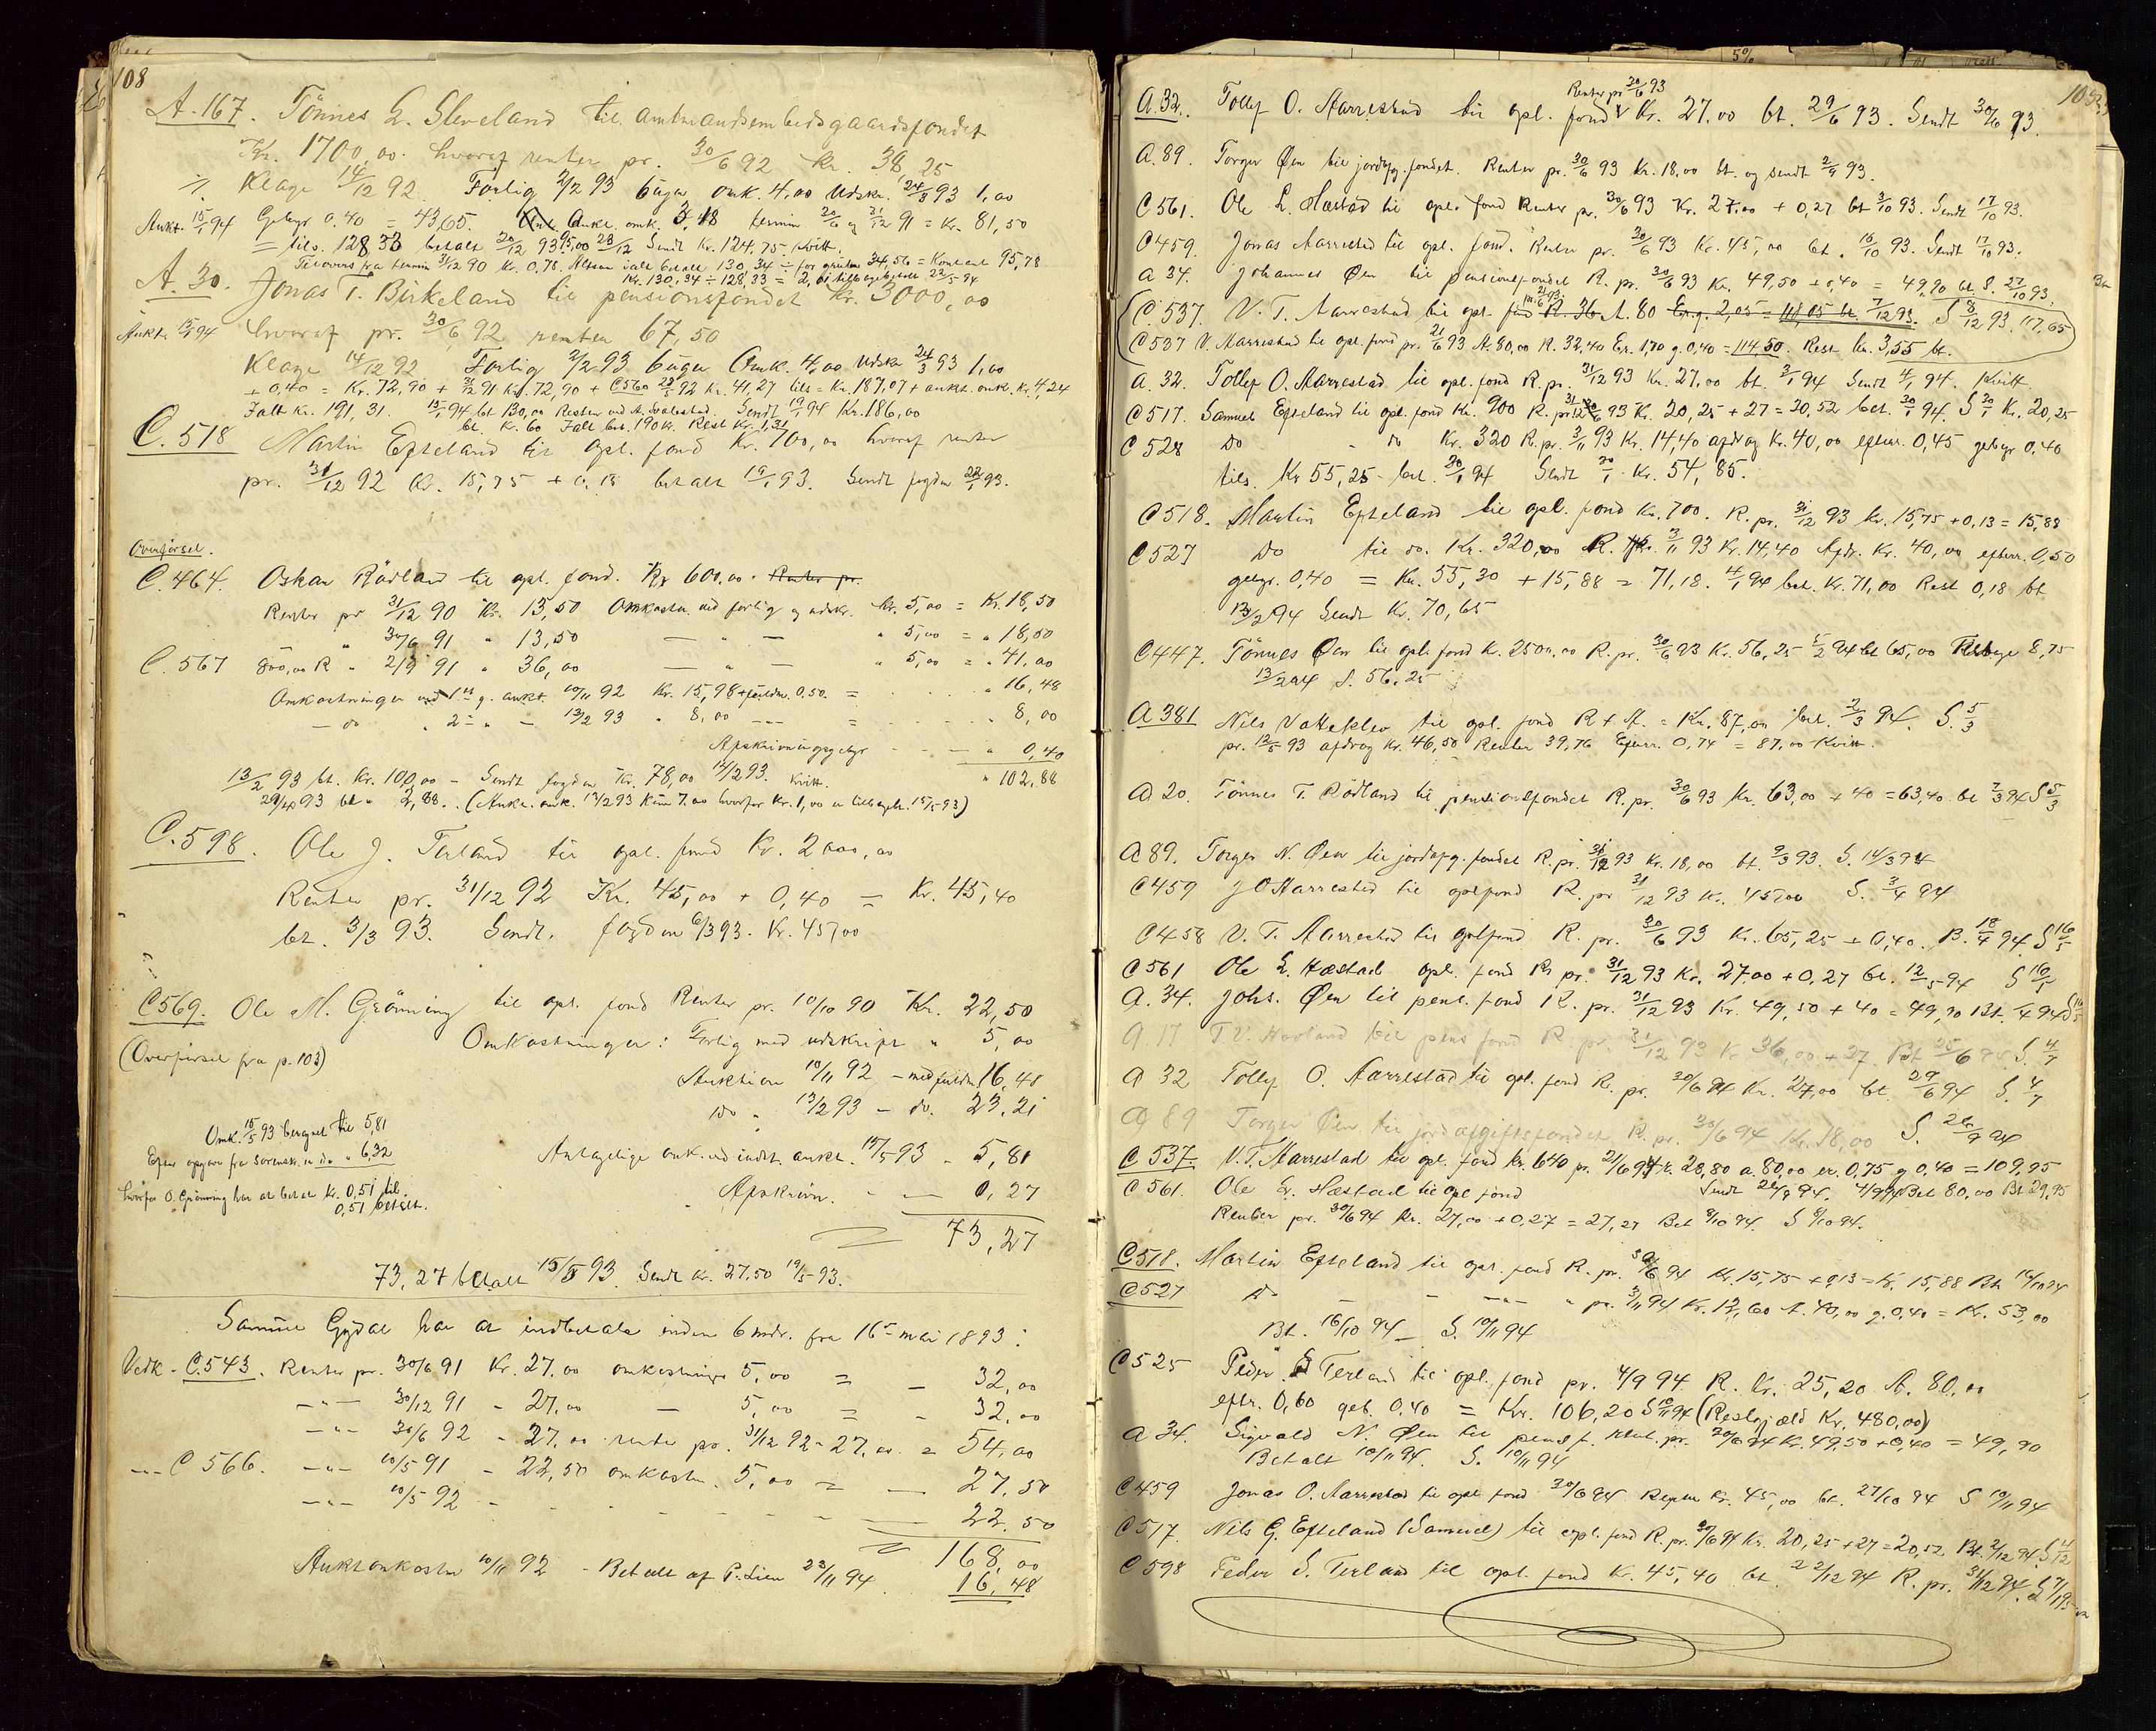 108
A. 167. Tönnes L. Sleveland til amtmandsembedsgaardsfondet
Kr. 1700,00. hvoraf renter pr. 30/6 92 Kr. 38,25
Klage 14/12 92. Forlig 2/2 93 6 uger Omk. 4,00 Udskr. 24/3 93 1,00
Aukt. 15/1 94 Gebyr 0.40 = 43,65. Aukt. omk. 3,18 termin 30/6 og 31/12 91 = Kr. 81,50
= tils. 128,33 betalt 30/12 93 95,00 28/12 Sendt Kr. 124,75. Kvitt.
Tilovers fra termin 31/12 90 Kr. 0,78. Altsaa ialt betalt 130,34 ÷ for 34,56 = Kontant 95,78
Kr. 130,34 ÷ 128,33 = 2,01 tilbagebetalt 22/5 94
A. 30. Jonas T. Birkeland til pensionsfondet Kr. 3000,00
Aukt. 15/1 94 hvoraf pr. 30/6 92 renter 67,50
Klage 14/12 92 Forlig 2/2 93 6 uger Omk. 4,00 Udskr 24/3 93 1,00
+ 0,40 = Kr. 72,90 + 31/12 91 Kr. 72,90 + C560 92 Kr. 41,27 tils = Kr. 187,07 + aukt. omk. Kr. 4,24
Ialt Kr. 191,31. 15/1 94 bt 130,00 Sendt 19/1 94 Kr. 186,00
bt. Kr. 60 Ialt bet. 190 Kr. Rest Kr. 1,31
C. 518 Martin Efteland til opl. fond Kr. 700,00 hvoraf renter
pr. 31/12 92 Kr. 15,75 + 0,13 betalt 19/1 93. Sendt fogden 22/1 93.
Overførsel.
C. 464. Oskar Rödland til opl. fond. Kr 600,00. Renter pr.
Renter pr 31/12 90 Kr. 13,50 Omkostn. ved forlig og udskr. Kr. 5,00 = Kr. 18,50
" 30/6 91 " 13,50 — " — " 5,00 = " 18,50
C. 567 800,00 R " 2/3 91 " 36,00 — " — " 5,00 = " 41,00
Omkostninger ved 1ste g. aukt. 10/11 92 Kr. 15,98 + fuldm. 0.50. = " 16,48
— do " 2— " — 13/2 93 " 8,00 — = " 8,00
Afskrivningsgebyr — " 0,40
13/2 93 bt. Kr. 100,00 – Sendt fogden Kr. 78,00 14/2 93. Kvitt. " 102,88
93 bt " 2,88. (Aukt. omk. 13/2 93 kun 7.00 hvorfor Kr. 1,00 er tilbageb. 15/5 93)
C. 598. Ole J. Terland til opl. fond Kr. 2000,00
Renter pr. 31/12 92 Kr. 45,00 + 0,40 = Kr. 45,40
bt. 3/3 93. Sendt. fogden 6/3 93. Kr. 45,00
C 569. Ole M. Grönning til opl. fond Renter pr. 10/10 90 Kr. 22,50
(Overførsel fra p. 103) Omkostninger: Forlig med udskript " 5,00
Auktion 10/11 92 – med fuldm. 16,48
Do " 13/2 93 – do. 23.21
Omk. 15/5 93 beregnet til 5,81 Antagelige omk. ved indst. aukt. 15/5 93 - 5,81
Efter opgave fra sorenskr. er do " 6,32
Afskrivn. - — 0,27
hvorfor O. Grönning har at betale Kr. 0,51 til.
0,51 betalt.
73,27
73,27 betalt 15/5 93. Sendt Kr. 27,50 19/5 93.
Samuel Gydal har at indbetale inden 6 mdr. fra 16de mai 1893:
Vedk - C. 543. Renter pr. 30/6 91 Kr. 27,00 omkostninger 5,00 = - 32,00
—"— 30/12 91 - 27,00 — 5,00 = - 32,00
—"— 30/6 92 - 27,00 renter pr. 31/12 92 - 27,00 = 54,00
—"— C 566. —"— 10/5 91 - 22,50 omkostn. 5,00 = — 27,50
—"— 10/5 92 - — 22.50
168,00
Auktsomkostn 10/11 92 - Betalt af P. Lien 23/11 94. 16,48
A. 32. Tollef O. Aarrestad til opl. fond Renter pr 30/6 93 Kr. 27.00 bt. 29/6 93. Sendt 30/6 93.
A. 89. Torger Øen til jordafg. fondet. Renter pr. 30/6 93 Kr. 18,00 bt. og sendt 2/9 93.
C 561. Ole L. Hæstad til opl. fond Renter pr. 30/6 93 Kr. 27.00 + 0,27 bt 3/10 93. Sendt 17/10 93.
C 459. Jonas Aarrestad til opl. fond. Renter pr. 30/6 93 Kr. 45,00 bt. 16/10 93. Sendt 17/10 93.
A 34. Johannes Øen til pensionsfondet R. pr. 30/6 93 Kr. 49,50 + 0,40 = 49,90 bt S. 27/10 93.
C. 537. V. T. Aarrestad til opl. fond R. 36 A. 80 Er. g. 2,05 = 118,05 bt. 7/12 93. S 8/12 93. 117,65
C 537 V. Aarrestad til opl. fond pr. 21/6 93 A. 80,00 R. 32,40 Er. 1,70 g. 0,40 = 114,50. Rest Kr. 3,55 bt.
A. 32. Tollef O. Aarrestad til opl. fond R. pr. 31/12 93 Kr. 27.00 bt. 3/1 94 Sendt 4/1 94. Kvitt.
C 517. Samuel Efteland til opl. fond Kr. 900 R. pr. 31/12 93 Kr. 20,25 + 27 = 20,52 bet. 20/1 94. S 20/1 Kr. 20,25
C 528 Do - do Kr. 320 R. pr. 3/11 93 Kr. 14,40 afdrag Kr. 40,00 efterr. 0,45 gebyr 0,40
tils. Kr 55,25 - bet. 20/1 94 Sendt 20/1 Kr. 54,85.
C 518. Martin Efteland til opl. fond Kr. 700. R. pr. 31/12 93 Kr. 15,75 + 0,13 = 15,88
C 527 Do til do. Kr. 320,00 R. pr. 3/11 93 Kr. 14,40 Afdr. Kr. 40,00 efterr. 0,50
gebyr. 0,40 = Kr. 55,30 + 15,88 = 71,18. 4/1 94 bet. Kr. 71,00 Rest 0,18 bt
13/2 94 Sendt Kr. 70,65
C 447. Tönnes Øen til opl. fond Kr. 2500,00 R. pr. 30/6 93 Kr. 56,25 5/2 94 bt 65,00 8,75
13/2 94 S. 56,25
A 381 Nils Vatteklev til opl. fond R + A. = Kr. 87,00 bet. 2/3 94. S. 5/3
pr. 12/5 93 afdrag Kr. 46,50 Renter 39,76 Efterr. 0,74 = 87.00 Kvitt.
A 20. Tönnes T. Rödland til pensionsfondet R. pr. 30/6 93 Kr. 63,00 + 40 = 63,40. bt 2/3 94 S 5/3
A 89. Torger N. Øen til jordafg. fondet R. pr. 31/12 93 Kr. 18,00 bt. 9/3 93. S. 14/3 94
C 459 J O Aarrestad til opl fond R. pr 31/12 93 Kr. 45,00 S. 3/4 94
C 458 V. T. Aarrestad til opl fond R. pr. 30/6 93 Kr. 65,25 + 0,40. B. 18/4 94. S 16/5
C 561 Ole L. Hæstad opl. fond R pr. 31/12 93 Kr. 27.00 + 0,27 bt. 12/5 94 S 16/5
A. 34. Johs. Øen til pens. fond R. pr. 31/12 93 Kr. 49,50 + 40 = 49,90 Bt.
A. 17 T. V. Hovland til pens fond R. pr. 31/12 93 Kr 36,00 + 27 Bt 25/6 94 S. 4/7
A 32 Tollef O. Aarrestad til opl. fond R. pr. 30/6 94 Kr. 27,00 bt. 29/6 94 S. 4/7
A 89 Torger Øen til jordafgiftsfondet R. pr. 30/6 94 Kr. 18,00 S. 26/9 94
C 537. V. T. Aarrestad til opl. fond Kr. 640 pr. 21/6 94 r. 28,80 a. 80,00 er. 0,75 g 0,40 = 109,95
C 561. Ole L. Hæstad til opl fond Sendt 26/9 94. 4/9 94 Bet 80,00 Bt 29,95
Renter pr. 30/6 94 Kr. 27,00 + 0,27 = 27,27 Bet 8/10 94. S 8/10 94.
C 518. Martin Efteland til opl. fond R. pr. 30/6 94 Kr. 15,75 + 0,13 = Kr. 15,88 Bt. 16/10 94
C 527 Do — - —"— " pr. 3/11 94 Kr. 12,60 A. 40,00 g. 0,40 = Kr. 53,00
Bt. 16/10 94 — S. 10/11 94
C 525 Peder S Terland til opl. fond pr. 4/9 94. R. Kr. 25,20 A. 80,00
eftr. 0,60 geb. 0,40 = Kr. 106,20 S 10/11 94 (Restgjæld Kr. 480,00)
A 34. Sigvald N. Øen til pens f. Rent. pr. 30/6 94 Kr. 49,50 + 0,40 = 49,90
Betalt 10/11 94. S. 10/11 94
C 459 Jonas O. Aarrestad til opl. fond 30/6 94 Renter Kr. 45,00 bt. 27/10 94 S 10/11 94
C 517. Nils G. Efteland (Samuel) til opl. fond R. pr. 30/6 94 Kr. 20,25 + 27 = 20,52 Bt. 2/12 94.
C 598 Peder S. Terland til opl. fond K. 45,40 bt. 22/12 94 R. pr. 31/12 94.